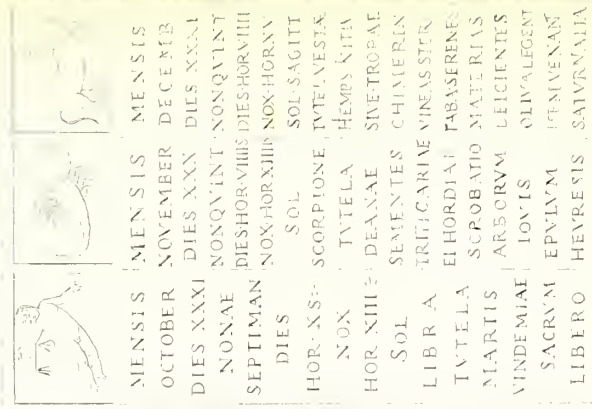 MENSIS
OCTOBER
DIES XXXI
NONAE
SEPTIMAN
DIES
HOR·XS
NOX
HOR XIII
SOL
LIBRA
TVTELA
MARTIS
VINDEMIAE
SACRVM
LIBERO
MENSIS
NOVEMBER
DIES XXX
NONQVINT
DIES·HOR·VIIIIS
NOX·HOR XIIIIS
SOL
SCORPIONE
TVTELA
DEANAE
SEMENTES
TRITICARIAE
ET HORDIAE
SCROBATIO
ARBORVM
IOVIS
EPVLVM
HEVRESIS
MENSIS
DECEMB
DIES XXXI
NONQVINT
DIES·HOR·VIIII
NOX·HOR·XV
SOL·SAGITT
TVTEL·VESTAE
SIVE·TROPAE
CHIMERIN
VINEAS STER
FABA·SERENES
MATERIAS
DEICIENTES
OLIVA·LEGENT
ITEM VENANT
SATVRNALIA